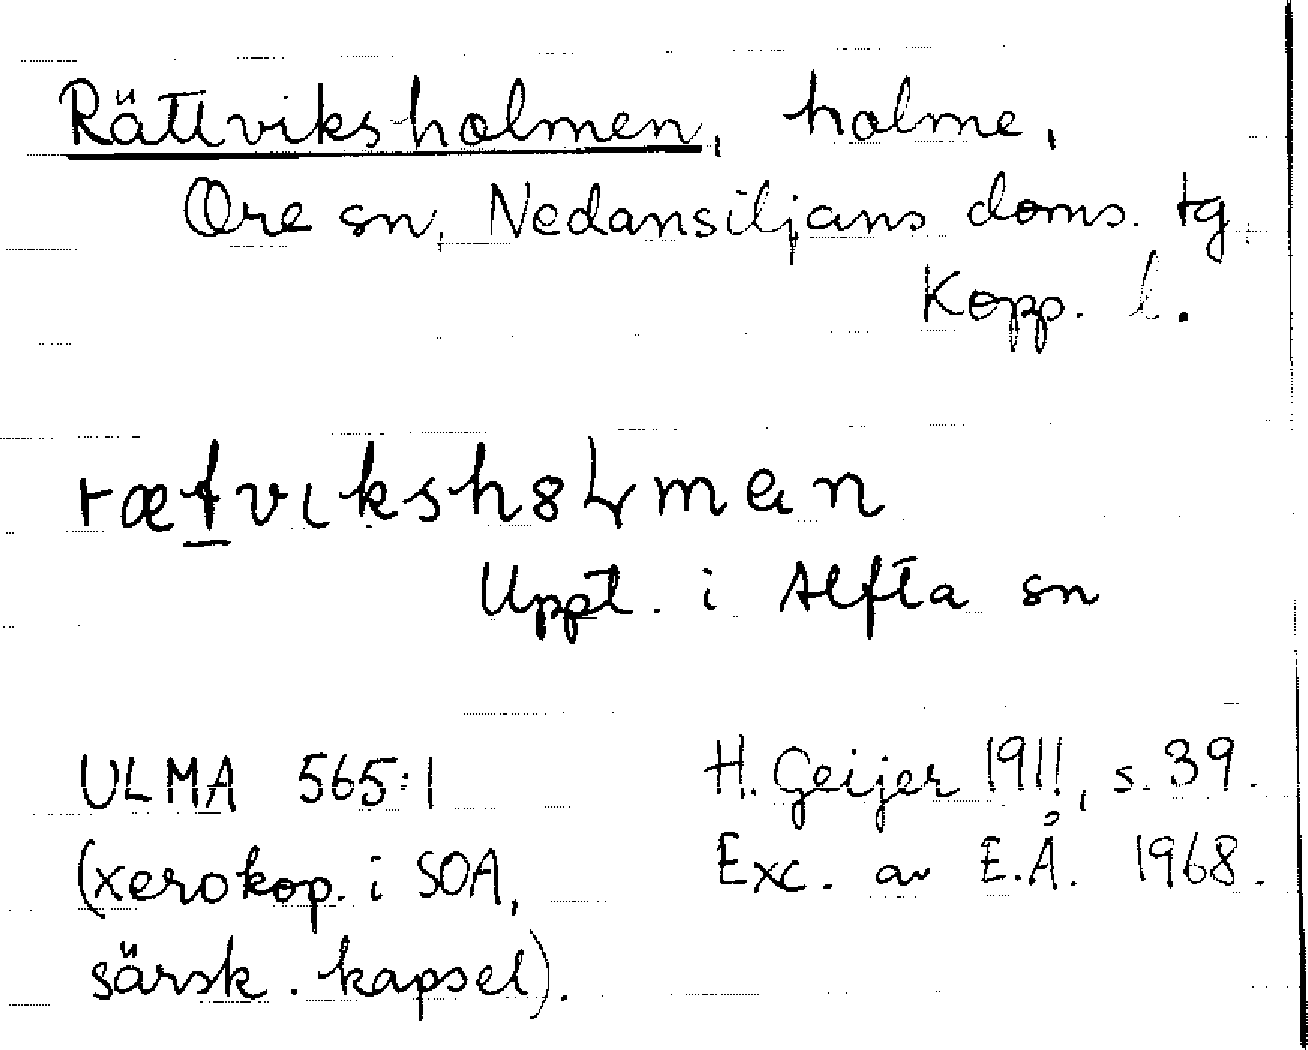 Rättviksholmen, holme,
Ore sn, Nedansiljans doms. tg
Kopp. l.
Uppt. i Alfta sn
ULMA 565:1
H. Geijer 1911, s. 39.
(xerokop. i SOA,
Exc. av E.Å. 1968.
särsk. kapsel).